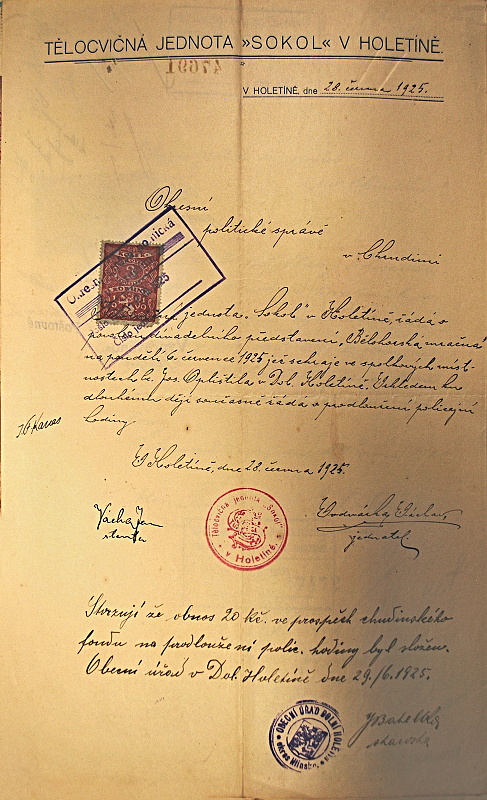 TĚLOCVIČNÁ JEDNOTA »SOKOL« V HOLETÍNĚ.
47691
V HOLETÍNĚ, dne 28. června 1925.
Okresní
politické správě
v Chrudimi
jednota „Sokol" v Holetíně, žádá o
divadelního představení, „Bělohorská mračna"
na pondělí 6. července 1925 jež sehraje ve spolkových míst-
nostech p. Jos. v Dol. Holetíně. Vzhledem ku
dlouhému ději současně žádá o prodloužení policejní
hodiny
V Holetíně, dne 28. června 1925.
Vácha Jan
starosta
Tělocvičná jednota „Sokol" v Holetíně.
jednatel
Stvrzuji že obnos 20 Kč. ve prospěch chudinského
fondu na prodloužení polic. hodiny byl složen.
Obecní úřad v Dol. Holetíně dne 29./6. 1925.
OBECNÍ ÚŘAD DOLNÍ HOLETÍN
okres Hlinsko
starosta